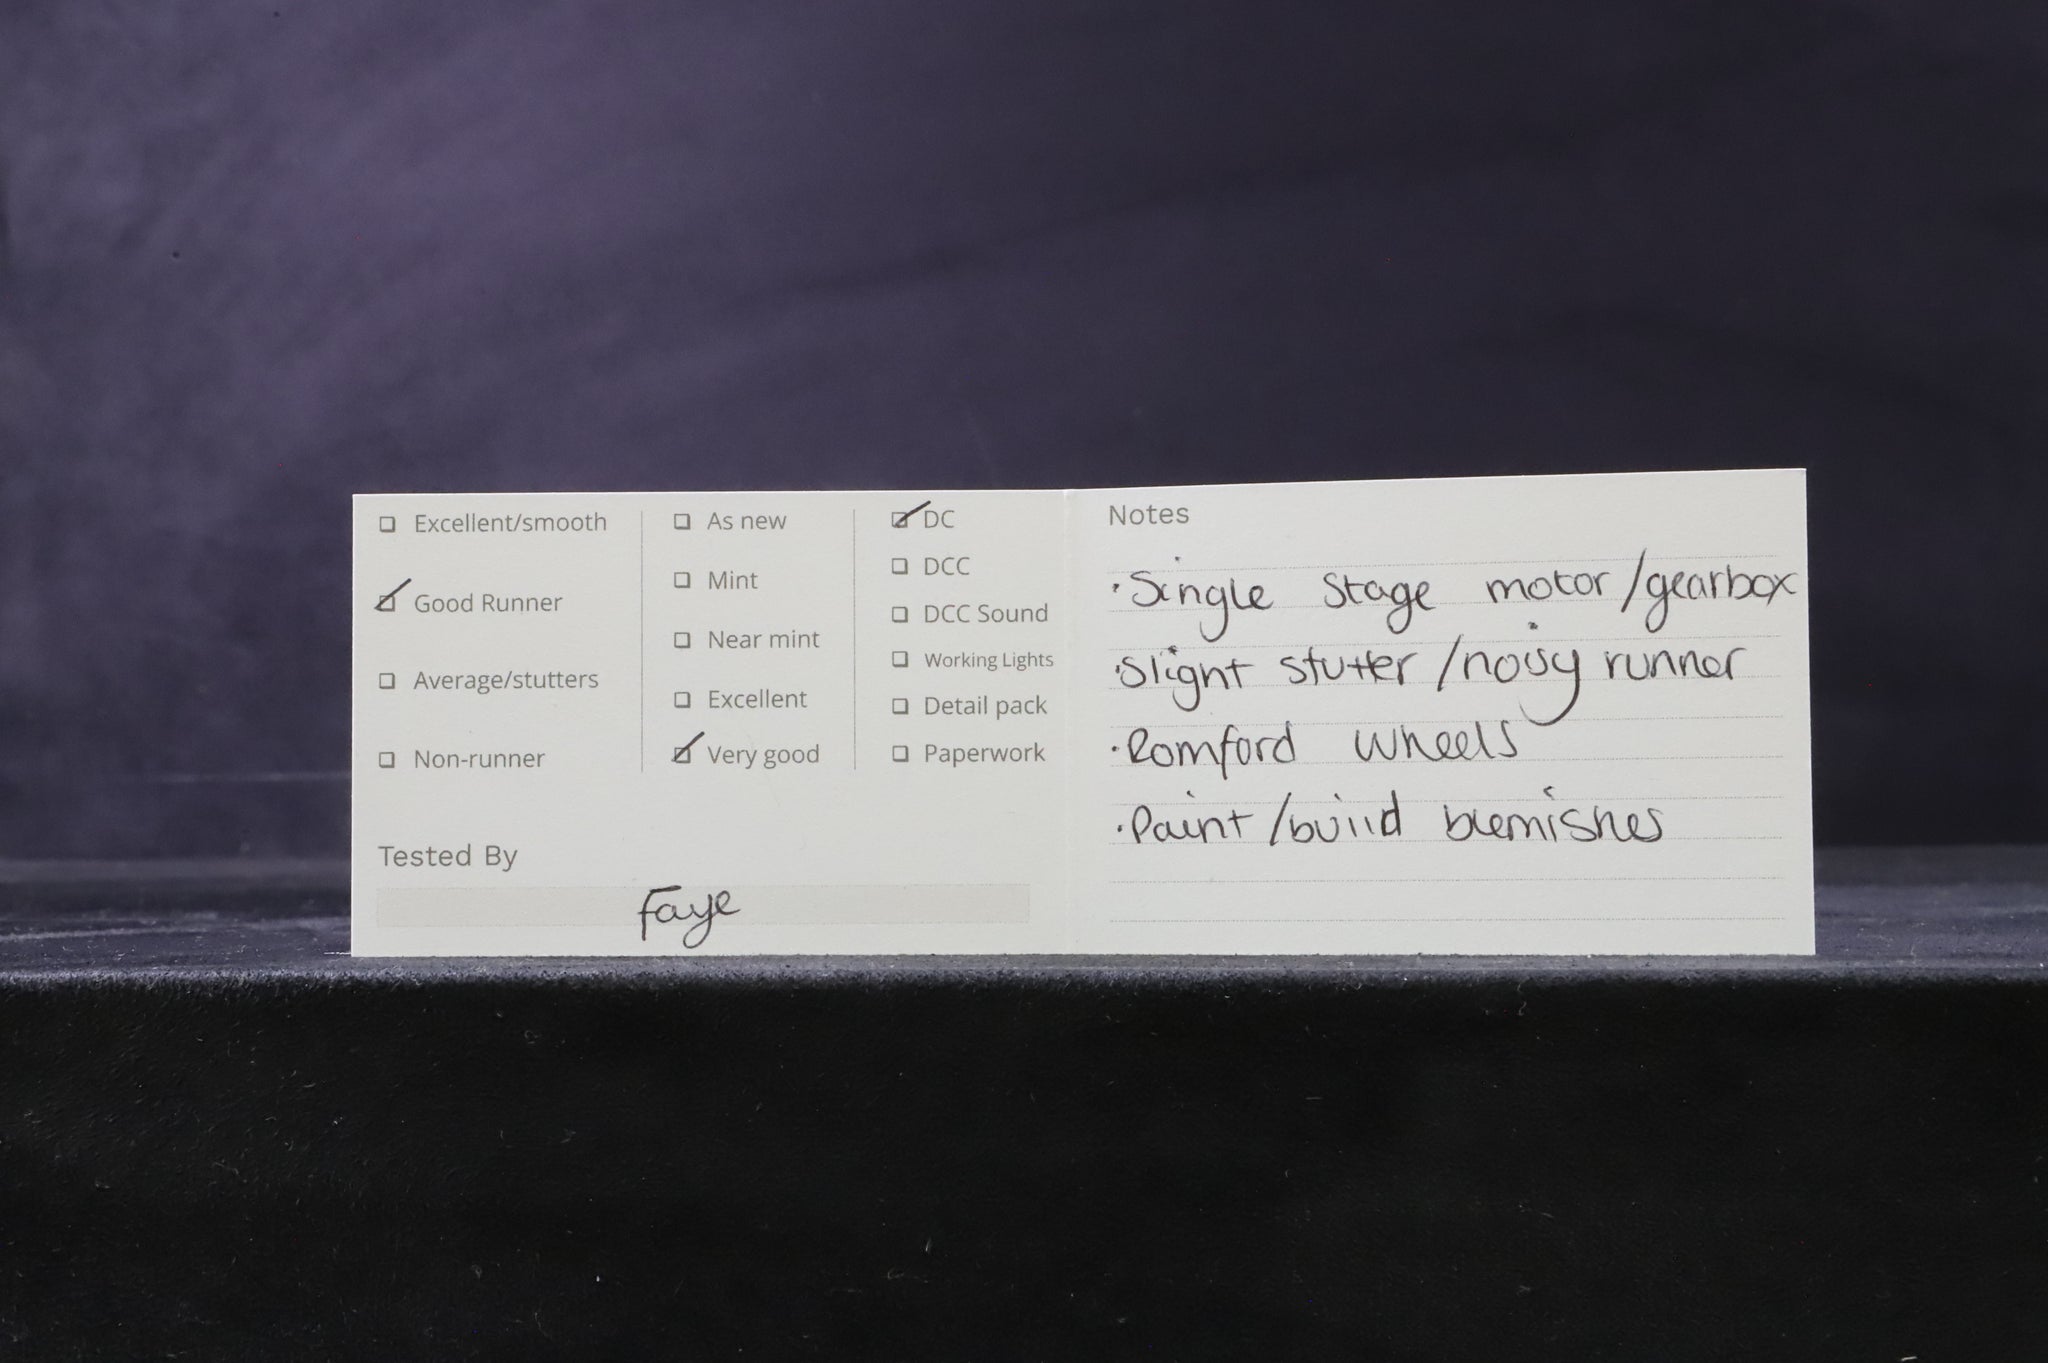 Excellent/smooth
Good Runner
Average/stutters
Non-runner
As new
Mint
Near mint
Excellent
Very good
DC
DCC
DCC Sound
Working Lights
Detail pack
Paperwork
Tested By
Faye
Notes
·Single Stage motor/gearbox
·Slight stutter/noisy runner
·Romford wheels
·Paint/build blemishes